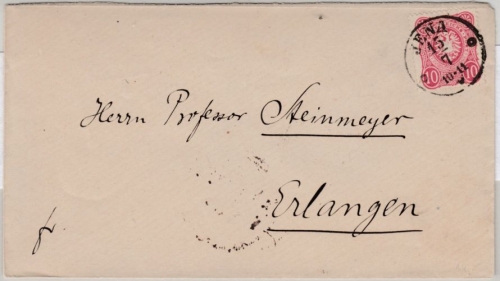 JENA
15/7
10-11
10 10
Herrn Professor Steinmeyer
Erlangen
fr